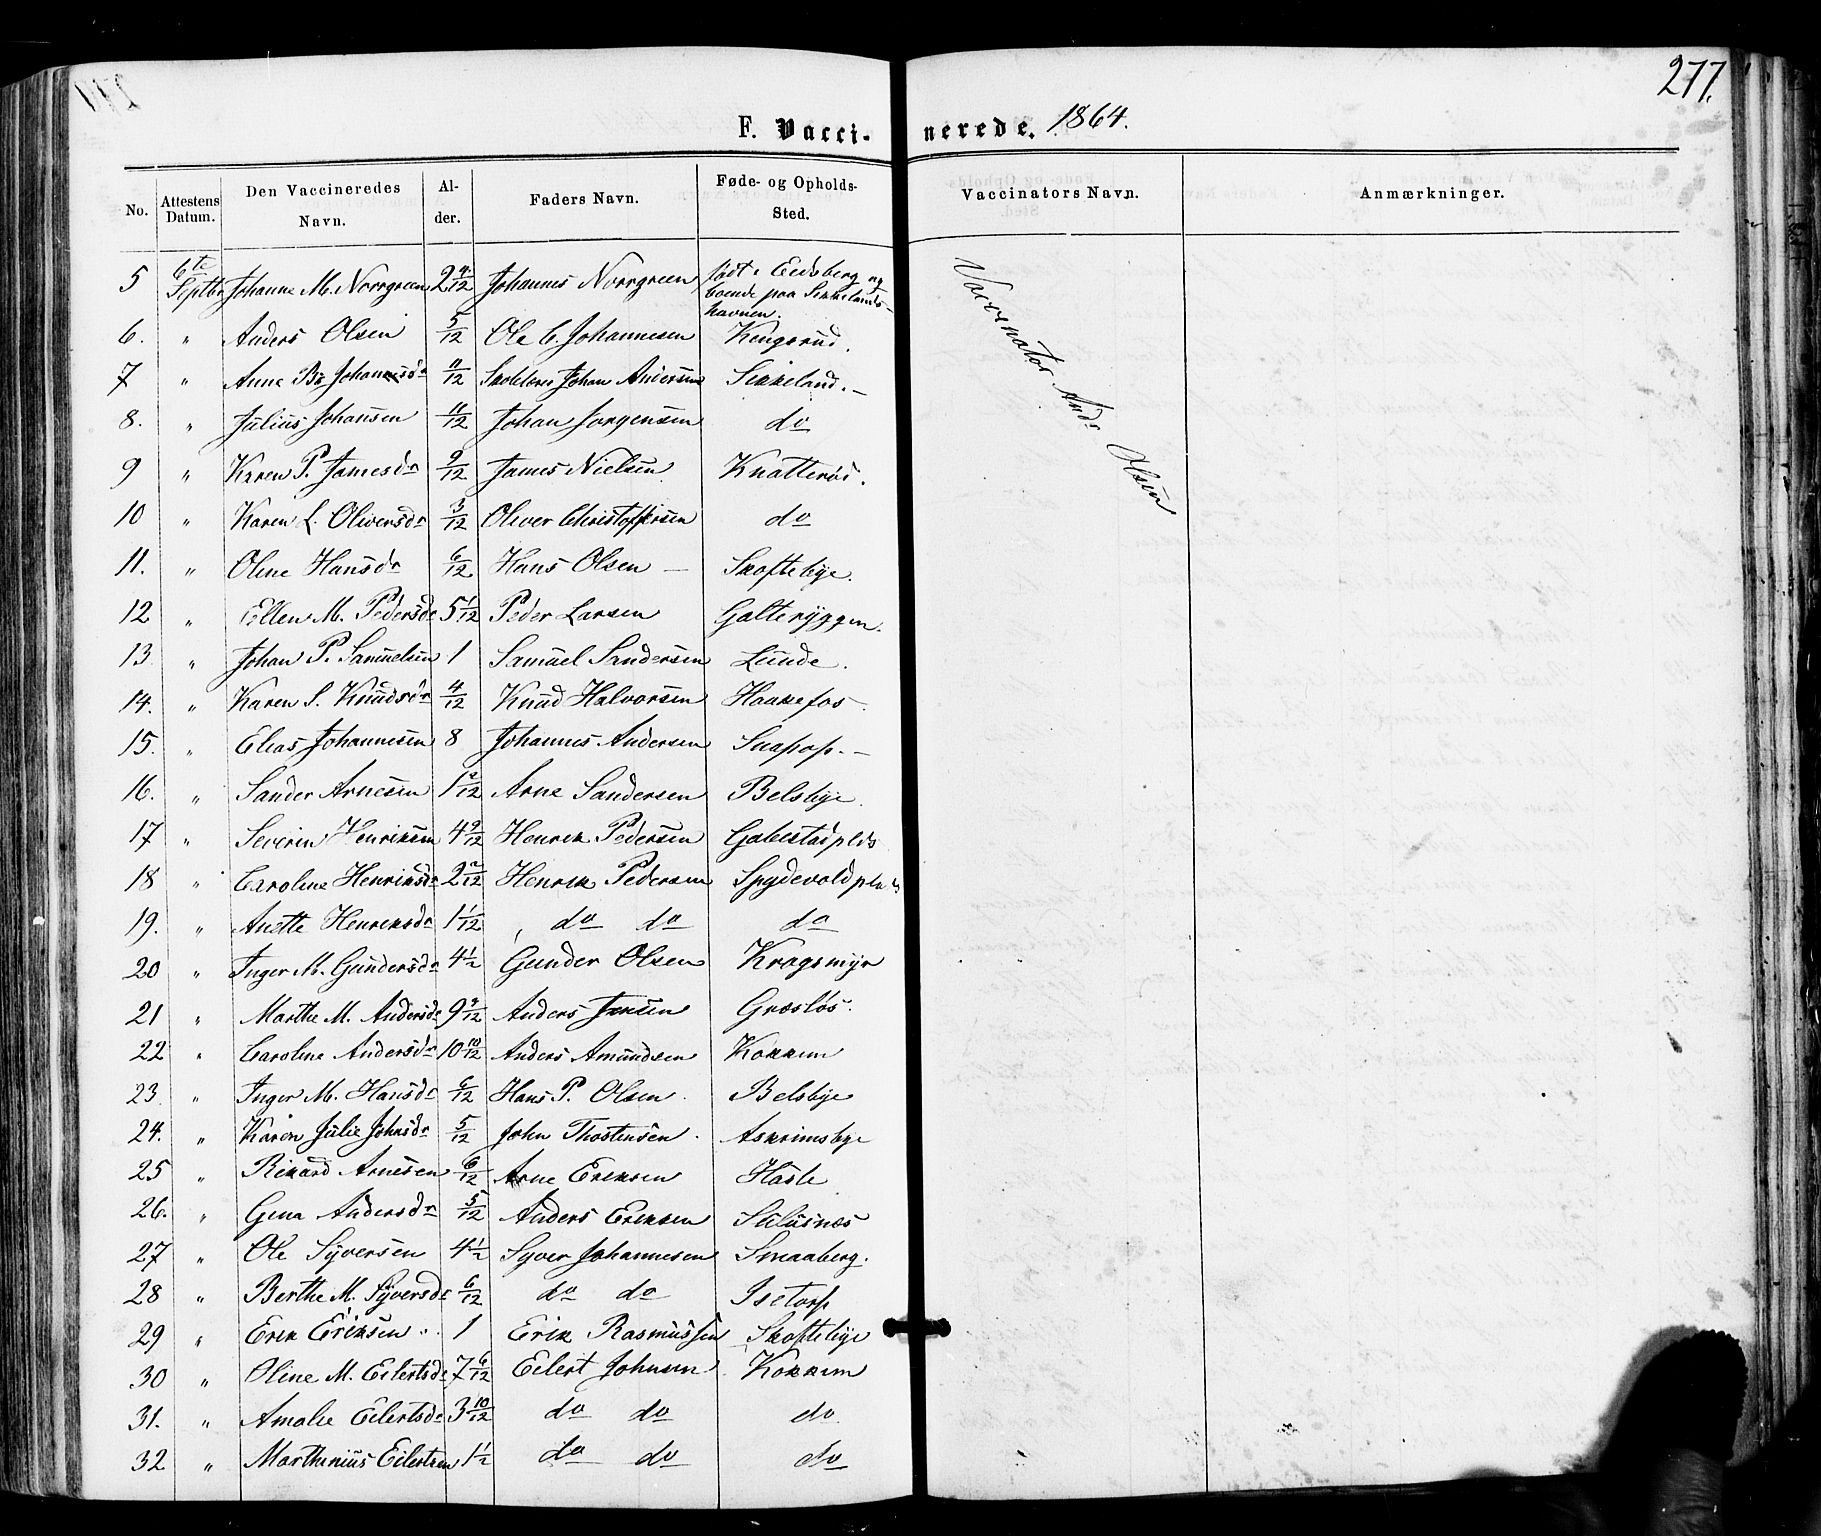 277.
F. Vacci- nerede. 1864.
No. Attestens Datum. Den Vaccineredes Navn. Al- der. Faders Navn. Føde- og Opholds- Sted. Vaccinators Navn. Anmærkninger.
5 6te Septbr Johanne M. Norrgreen 2 4/12 Johannes Norrgreen født i Eidsberg og boende paa Sikkelands- havnen.
6. " Anders Olsen 5/12 Ole C. Johannesen Kengsrud.
7 " Anne B. Johannsdr 11/12 Skolelærer Johan Andersen Sikkeland.
8. " Julius Johansen 11/12 Johan Jørgensen do
9 " Karen P. Jamesdr 9/12 James Nielsen Knatterød.
10 " Karen L. Oliversdr 3/12 Oliver Christoffersen do
11. " Oline Hansdr 6/12 Hans Olsen — Skoftebye.
12 " Ellen M. Pedersdr 5 1/12 Peder Larsen Galteryggen.
13 " Johan P. Samuelsen 1 Samuel Sandersen Lunde.
14. " Karen S. Knudsdr 4/12 Knud Halvorsen Haakefos.
15. " Elias Johannesen 8 Johannes Andersen
16. " Sander Arnesen 1 2/12 Arne Sandersen Belsbye.
17 " Severin Henriksen 4 9/12 Henrik Pedersen Gabestadplds
18 " Caroline Henriksdr 2 2/12 Henrik Pedersen Spydevoldplds
19. " Anette Henriksdr 1 1/12 do do do
20 " Inger M. Gundersdr 4 1/2 Gunder Olsen Kragsmyr
21 " Marthe M. Andersdr 9 3/12 Anders Jensen Græsløs.
22 " Caroline Andersdr 10 10/12 Anders Amundsen Kokkim
23. " Inger M. Hansdr 6/12 Hans P. Olsen. Belsbye
24. " Karen Julie Johnsdr 5/12 John Thostensen. Askrimsbye
25 " Rikard Arnesen 6/12 Arne Eriksen Hasle
26. " Gina Andersdr 5/12 Anders Eriksen Stiusnæs
27 " Ole Syversen 4 1/2 Syver Johannesen Smaaberg.
28 " Berthe M. Syversdr 6/12 do do Isetorp
29 " Erik Eriksen 1 Erik Rasmussen Skoftebye
30 " Oline M. Eilertsdr 7 6/12 Eilert Johnsen Kokkim
31. " Amalie Eilertsdr 3 10/12 do do do
32 " Marthinius Eilertsen 1 1/2 do do do
Vaccinator Andr Olsen